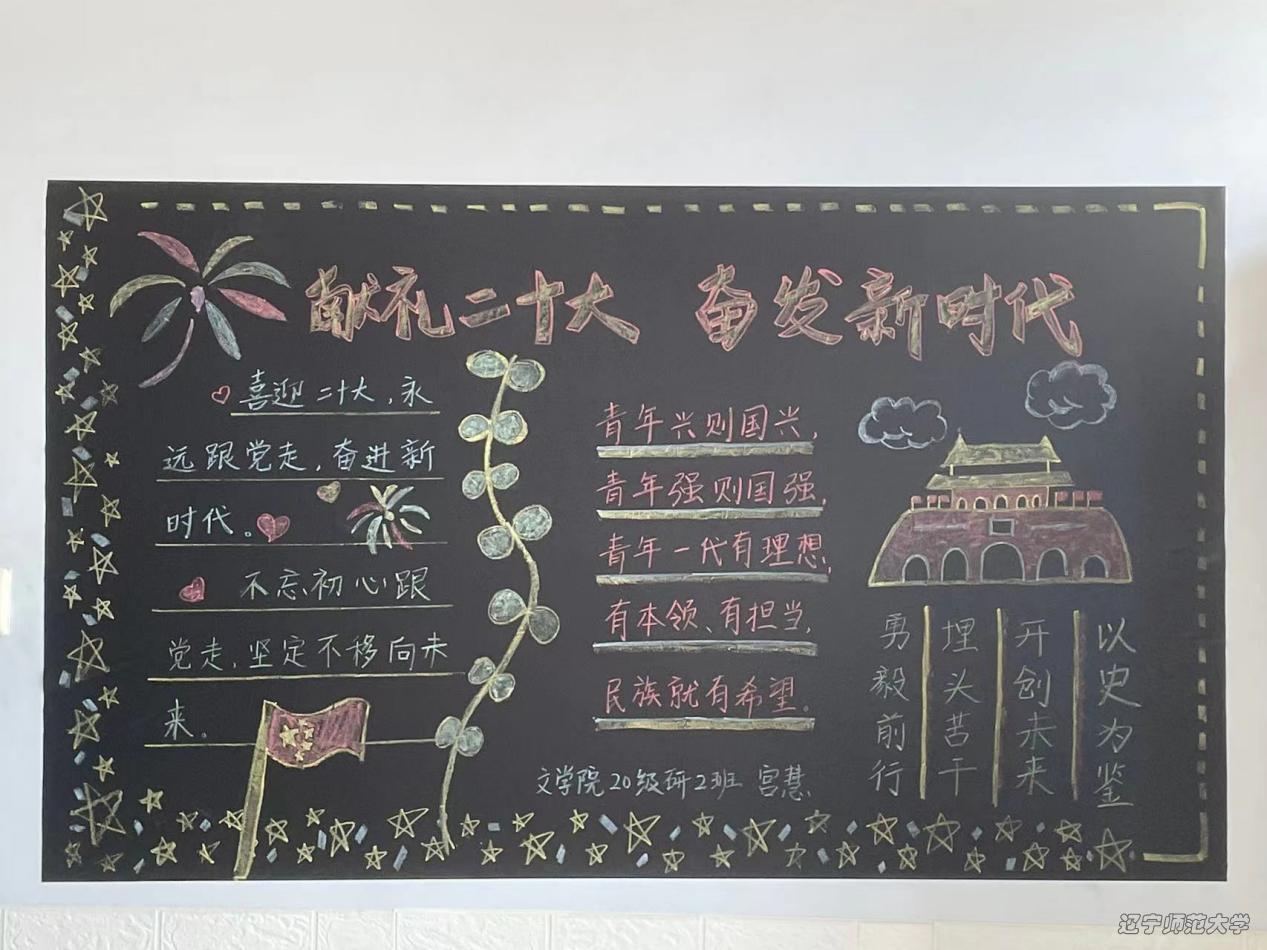 献礼二十大 奋发新时代
喜迎二十大，永
远跟党走，奋进新
时代。
不忘初心跟
党走，坚定不移向未
来。
青年兴则国兴，
青年强则国强，
青年一代有理想，
有本领、有担当，
民族就有希望。
文学院20级研2班 宫慧
以史为鉴
开创未来
埋头苦干
勇毅前行
辽宁师范大学